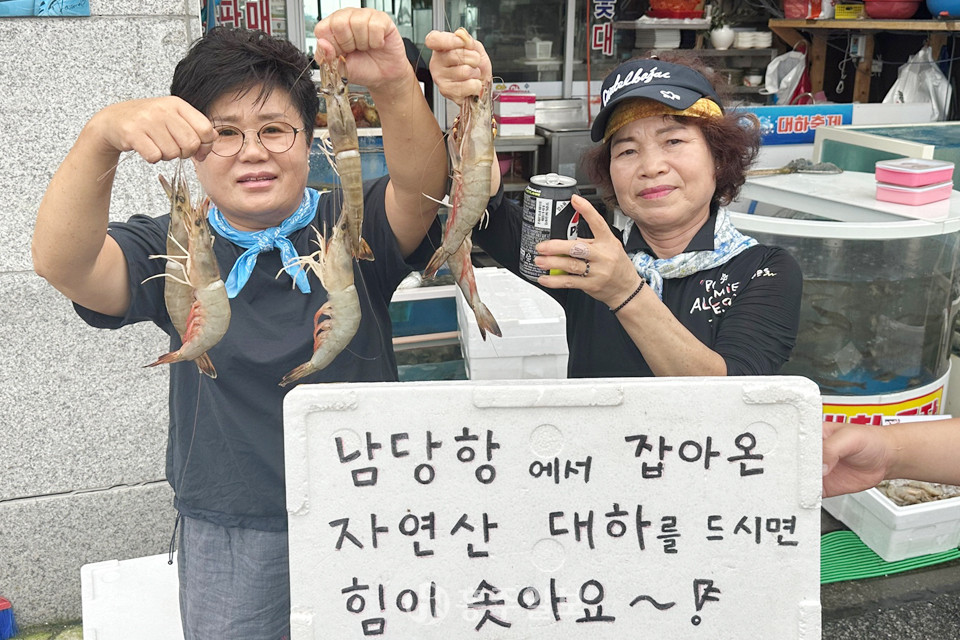 판매
대
Castelbajac
대하축제
남당항 에서 잡아온
자연산 대하를 드시면
힘이 솟아요~!